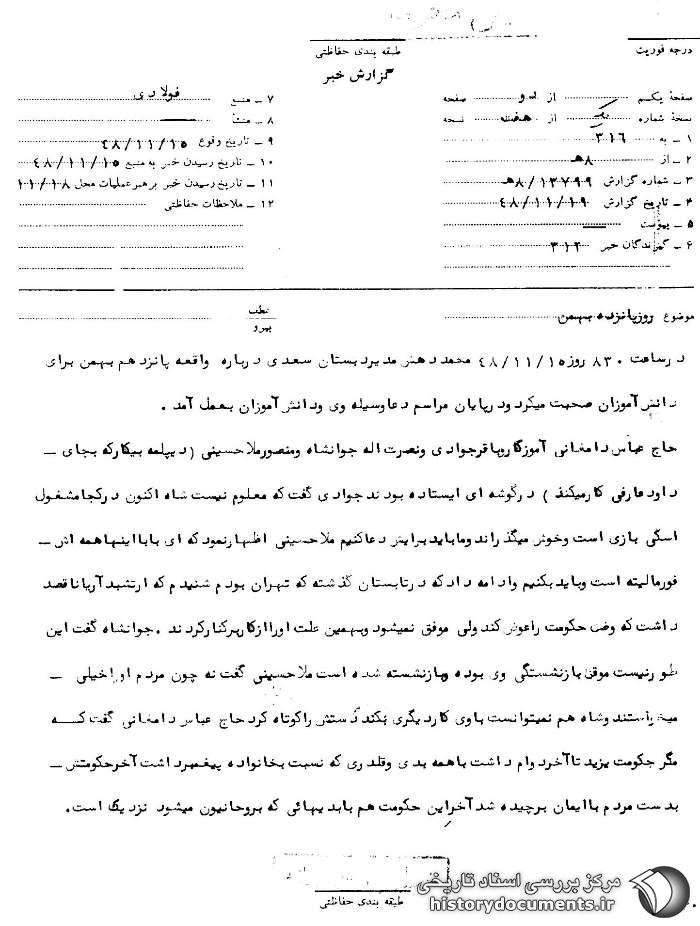 درجه فوریت
طبقه بندی حفاظتی
گزارش خبر
صفحهٔ یکم از دو صفحه
نسخهٔ شماره یک از هفت نسخه
۱ ـ به ۳۱۶
۲ ـ از ۸ هـ
۳ ـ شماره گزارش ۸/۱۳۷۹۹ هـ
۴ ـ تاریخ گزارش ۴۸/۱۱/۱۹
۵ ـ پیوست
۶ ـ گیرندگان خبر ۳۱۲
۷ ـ منبع فولادی
۸ ـ منشأ
۹ ـ تاریخ وقوع ۴۸/۱۱/۱۵
۱۰ ـ تاریخ رسیدن خبر به منبع ۴۸/۱۱/۱۵
۱۱ ـ تاریخ رسیدن خبر برهبر عملیات محل ۱۱/۱۸
۱۲ ـ ملاحظات حفاظتی
موضوع روزپانزده بهمن
عطف
پیرو
درساعت ۸۳۰ روز ۴۸/۱۱/۱۵ محمد دهش مدیردبستان سعدی درباره واقعه پانزدهم بهمن برای
دانش آموزان صحبت میکرد ودرپایان مراسم دعاوسیله وی ودانش آموزان بعمل آمد .
حاج عباس دامغانی آموزگاروباقرجوادی ونصرت اله جوانشاه ومنصورملاحسینی ( دیپلمه بیکارکه بجای ـ
داودعارفی کارمیکند ) درگوشه ای ایستاده بودند جوادی گفت که معلوم نیست شاه اکنون درکجامشغول
اسکی بازی است وخوش میگذراند ومابایدبرایش دعاکنیم ملاحسینی اظهارنمود که ای بابا اینهاهمه اش ـ
فورمالیته است وباید بکنیم وادامه داد که درتابستان گذشته که تهران بودم شنیدم که ارتشبد آریاناقصد
داشت که وضع حکومت راعوض کند ولی موفق نمیشود وبهمین علت اوراازکاربرکنارکردند .جوانشاه گفت این
طورنیست موقع بازنشستگی وی بوده وبازنشسته شده است ملاحسینی گفت نه چون مردم اوراخیلی ـ
میخواستند وشاه هم نمیتوانست باوی کاردیگری بکند دستش راکوتاه کرد حاج عباس دامغانی گفت کسه
مگر حکومت یزید تاآخردوام داشت باهمه بدی وقلدری که نسبت بخانواده پیغمبرداشت آخرحکومتش ـ
بدست مردم باایمان برچیده شد آخراین حکومت هم بابدیهائی که بروحانیون میشود نزدیک است.
طبقه بندی حفاظتی
مرکز بررسی اسناد تاریخی
historydocuments.ir